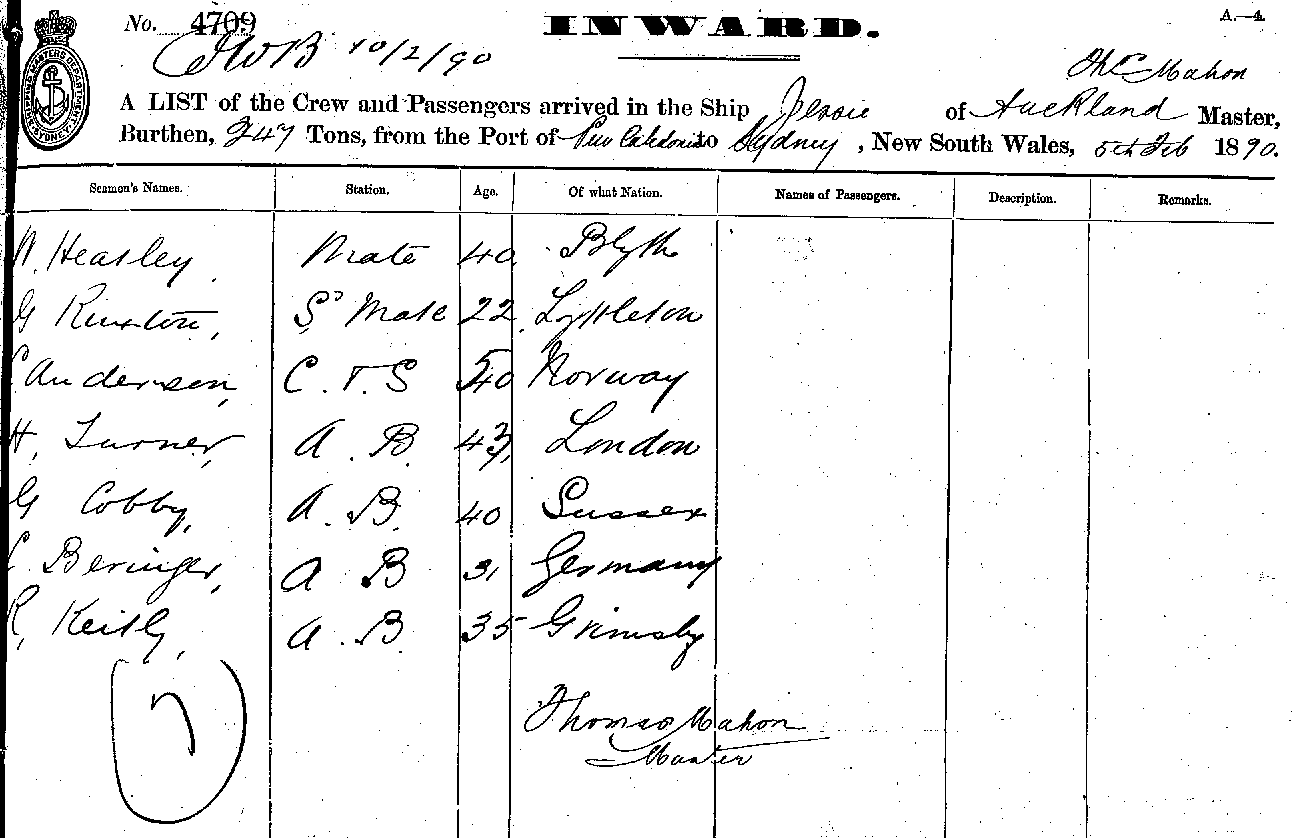 No. 4709 INWARD. A.—4.
JWB 10/2/90
Thos Mahon
A LIST of the Crew and Passengers arrived in the Ship Jessie of Auckland Master,
Burthen, 247 Tons, from the Port of New Caledonia to Sydney, New South Wales, 5th Feb 1890.
Seamen's Names. Station. Age. Of what Nation. Names of Passengers. Description. Remarks.
Heatley Mate 40 Blyth
G S Mate 22 Lyttleton
Anderson, C.&S 40 Norway
H, Turner, A.B. 43, London
G Cobby, A.B. 40 Sussex
Beringer, A B 31 Germany
R, A.B. 35 Grimsby
7
Thomas Mahon
Master